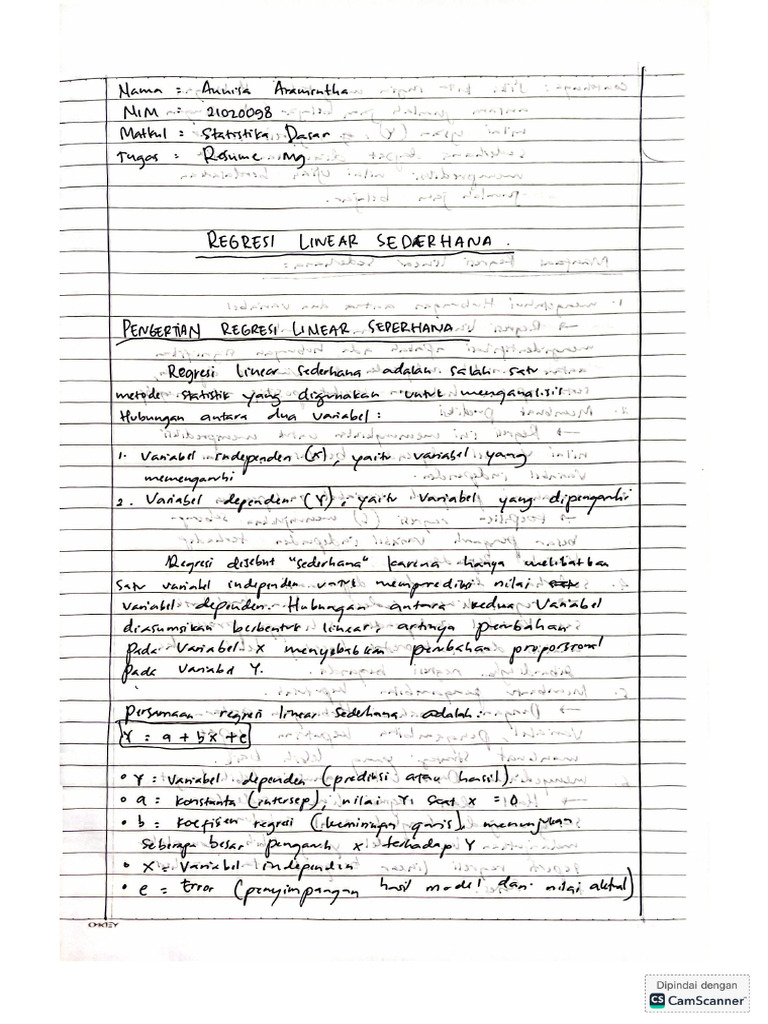 Nama : Annisa Aramintha
NIM : 21020098
Matkul : Statistika Dasar
Tugas : Resume Mg
REGRESI LINEAR SEDERHANA.
PENGERTIAN REGRESI LINEAR SEDERHANA
Regresi linear sederhana adalah salah satu
metode statistik yang digunakan untuk menganalisis
Hubungan antara dua variabel :
1. Variabel independen (X), yaitu variabel yang
memengaruhi
2. Variabel dependen (Y), yaitu variabel yang dipengaruhi
Regresi disebut "sederhana" karena hanya melibatkan
satu variabel independen untuk memprediksi nilai
variabel dependen. Hubungan antara kedua variabel
diasumsikan berbentuk linear, artinya perubahan
pada variabel X menyebabkan perubahan proporsional
pada variabel Y.
Persamaan regresi linear sederhana adalah :
Y = a + bx + e
• Y = Variabel dependen (prediksi atau hasil)
• a = Konstanta (intersep), nilai Y saat X = 0
• b = Koefisen regresi (kemiringan garis), menunjukan
seberapa besar pengaruh X terhadap Y
• X = Variabel independen
• e = Error (penyimpangan hasil model dari nilai aktual)
OKEY
Dipindai dengan
CS CamScanner